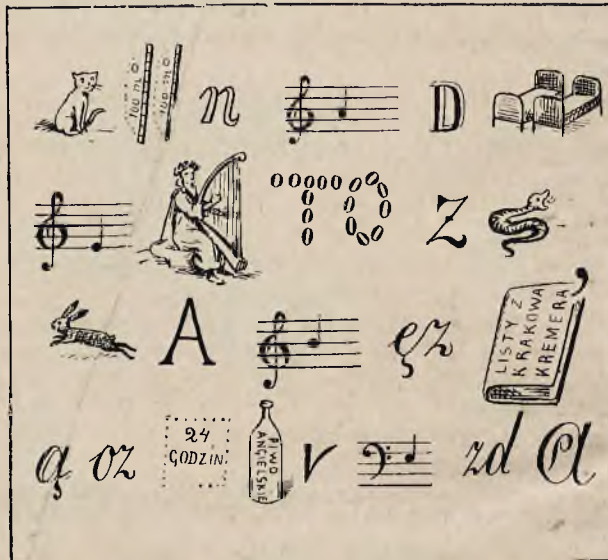 n D
TO Z
A ęz LISTY Z KRAKOWA KREMERA ,
ą oz 24 GODZIN PIWO ANGIELSKIE r zd a